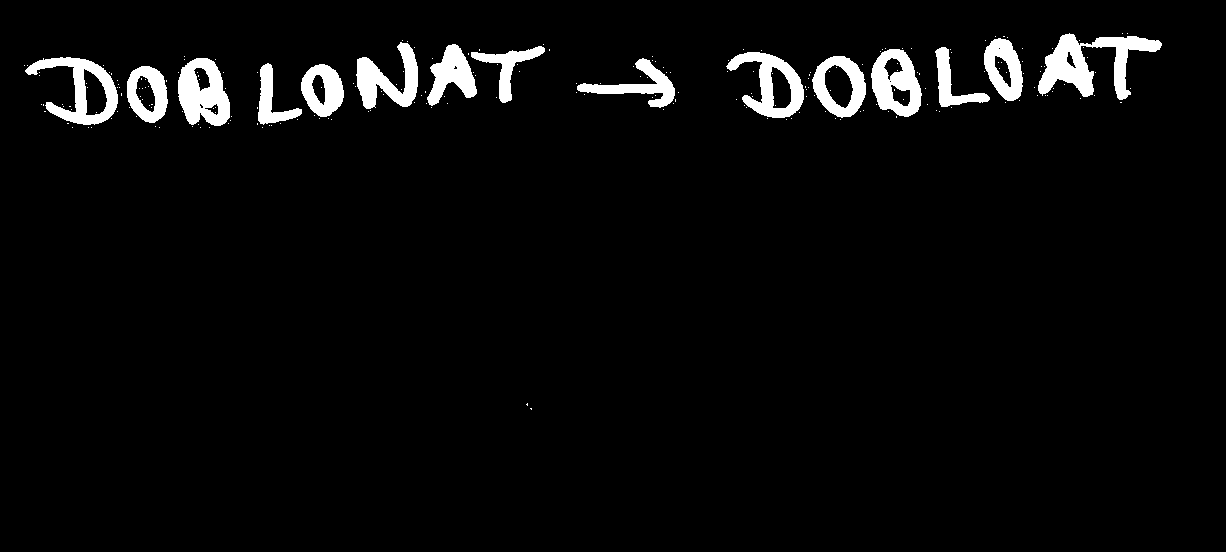 DOBLONAT → DOBLOAT